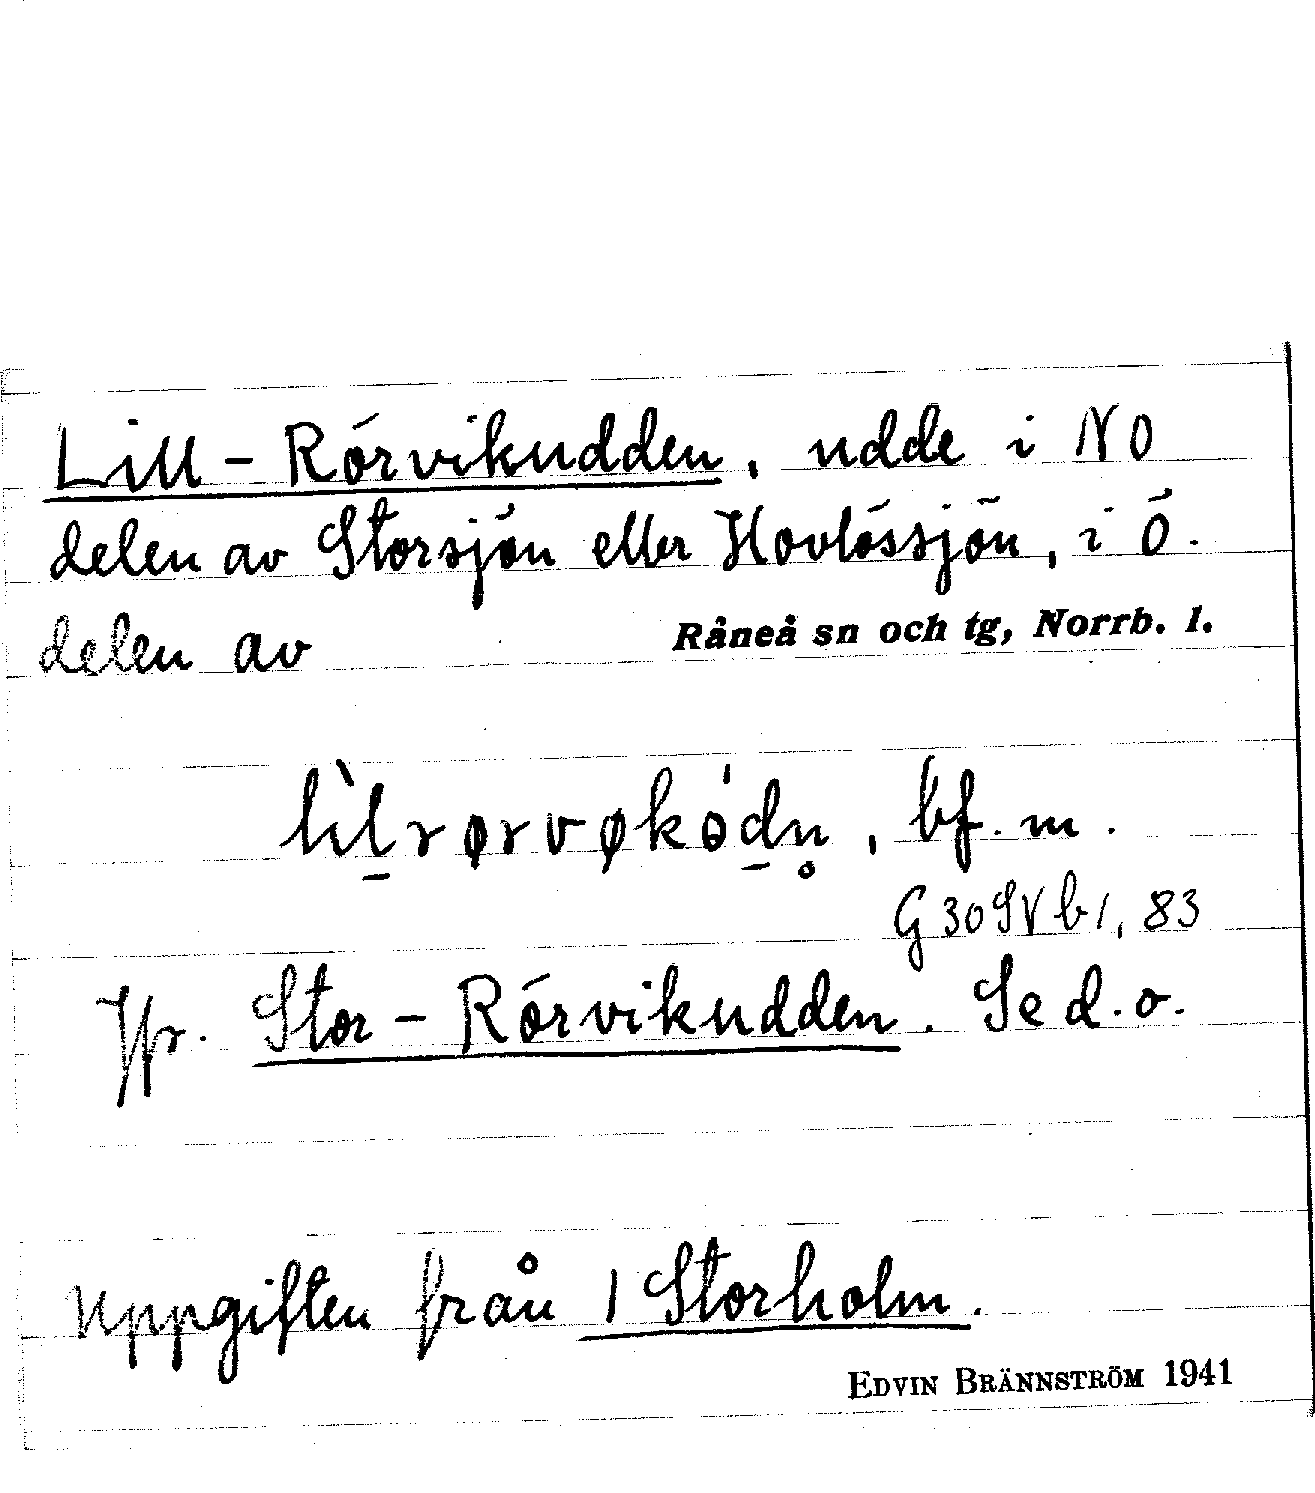 Lill-Rörvikudden, udde i NO
delen av Storsjön eller Hovlössjön, i Ö.
delen av Råneå sn och tg, Norrb. l.
bf. m.
G 30 SV b 1, 83
Jfr. Stor-Rörvikudden. Se d.o.
Uppgiften från 1 Storholm.
EDVIN BRÄNNSTRÖM 1941